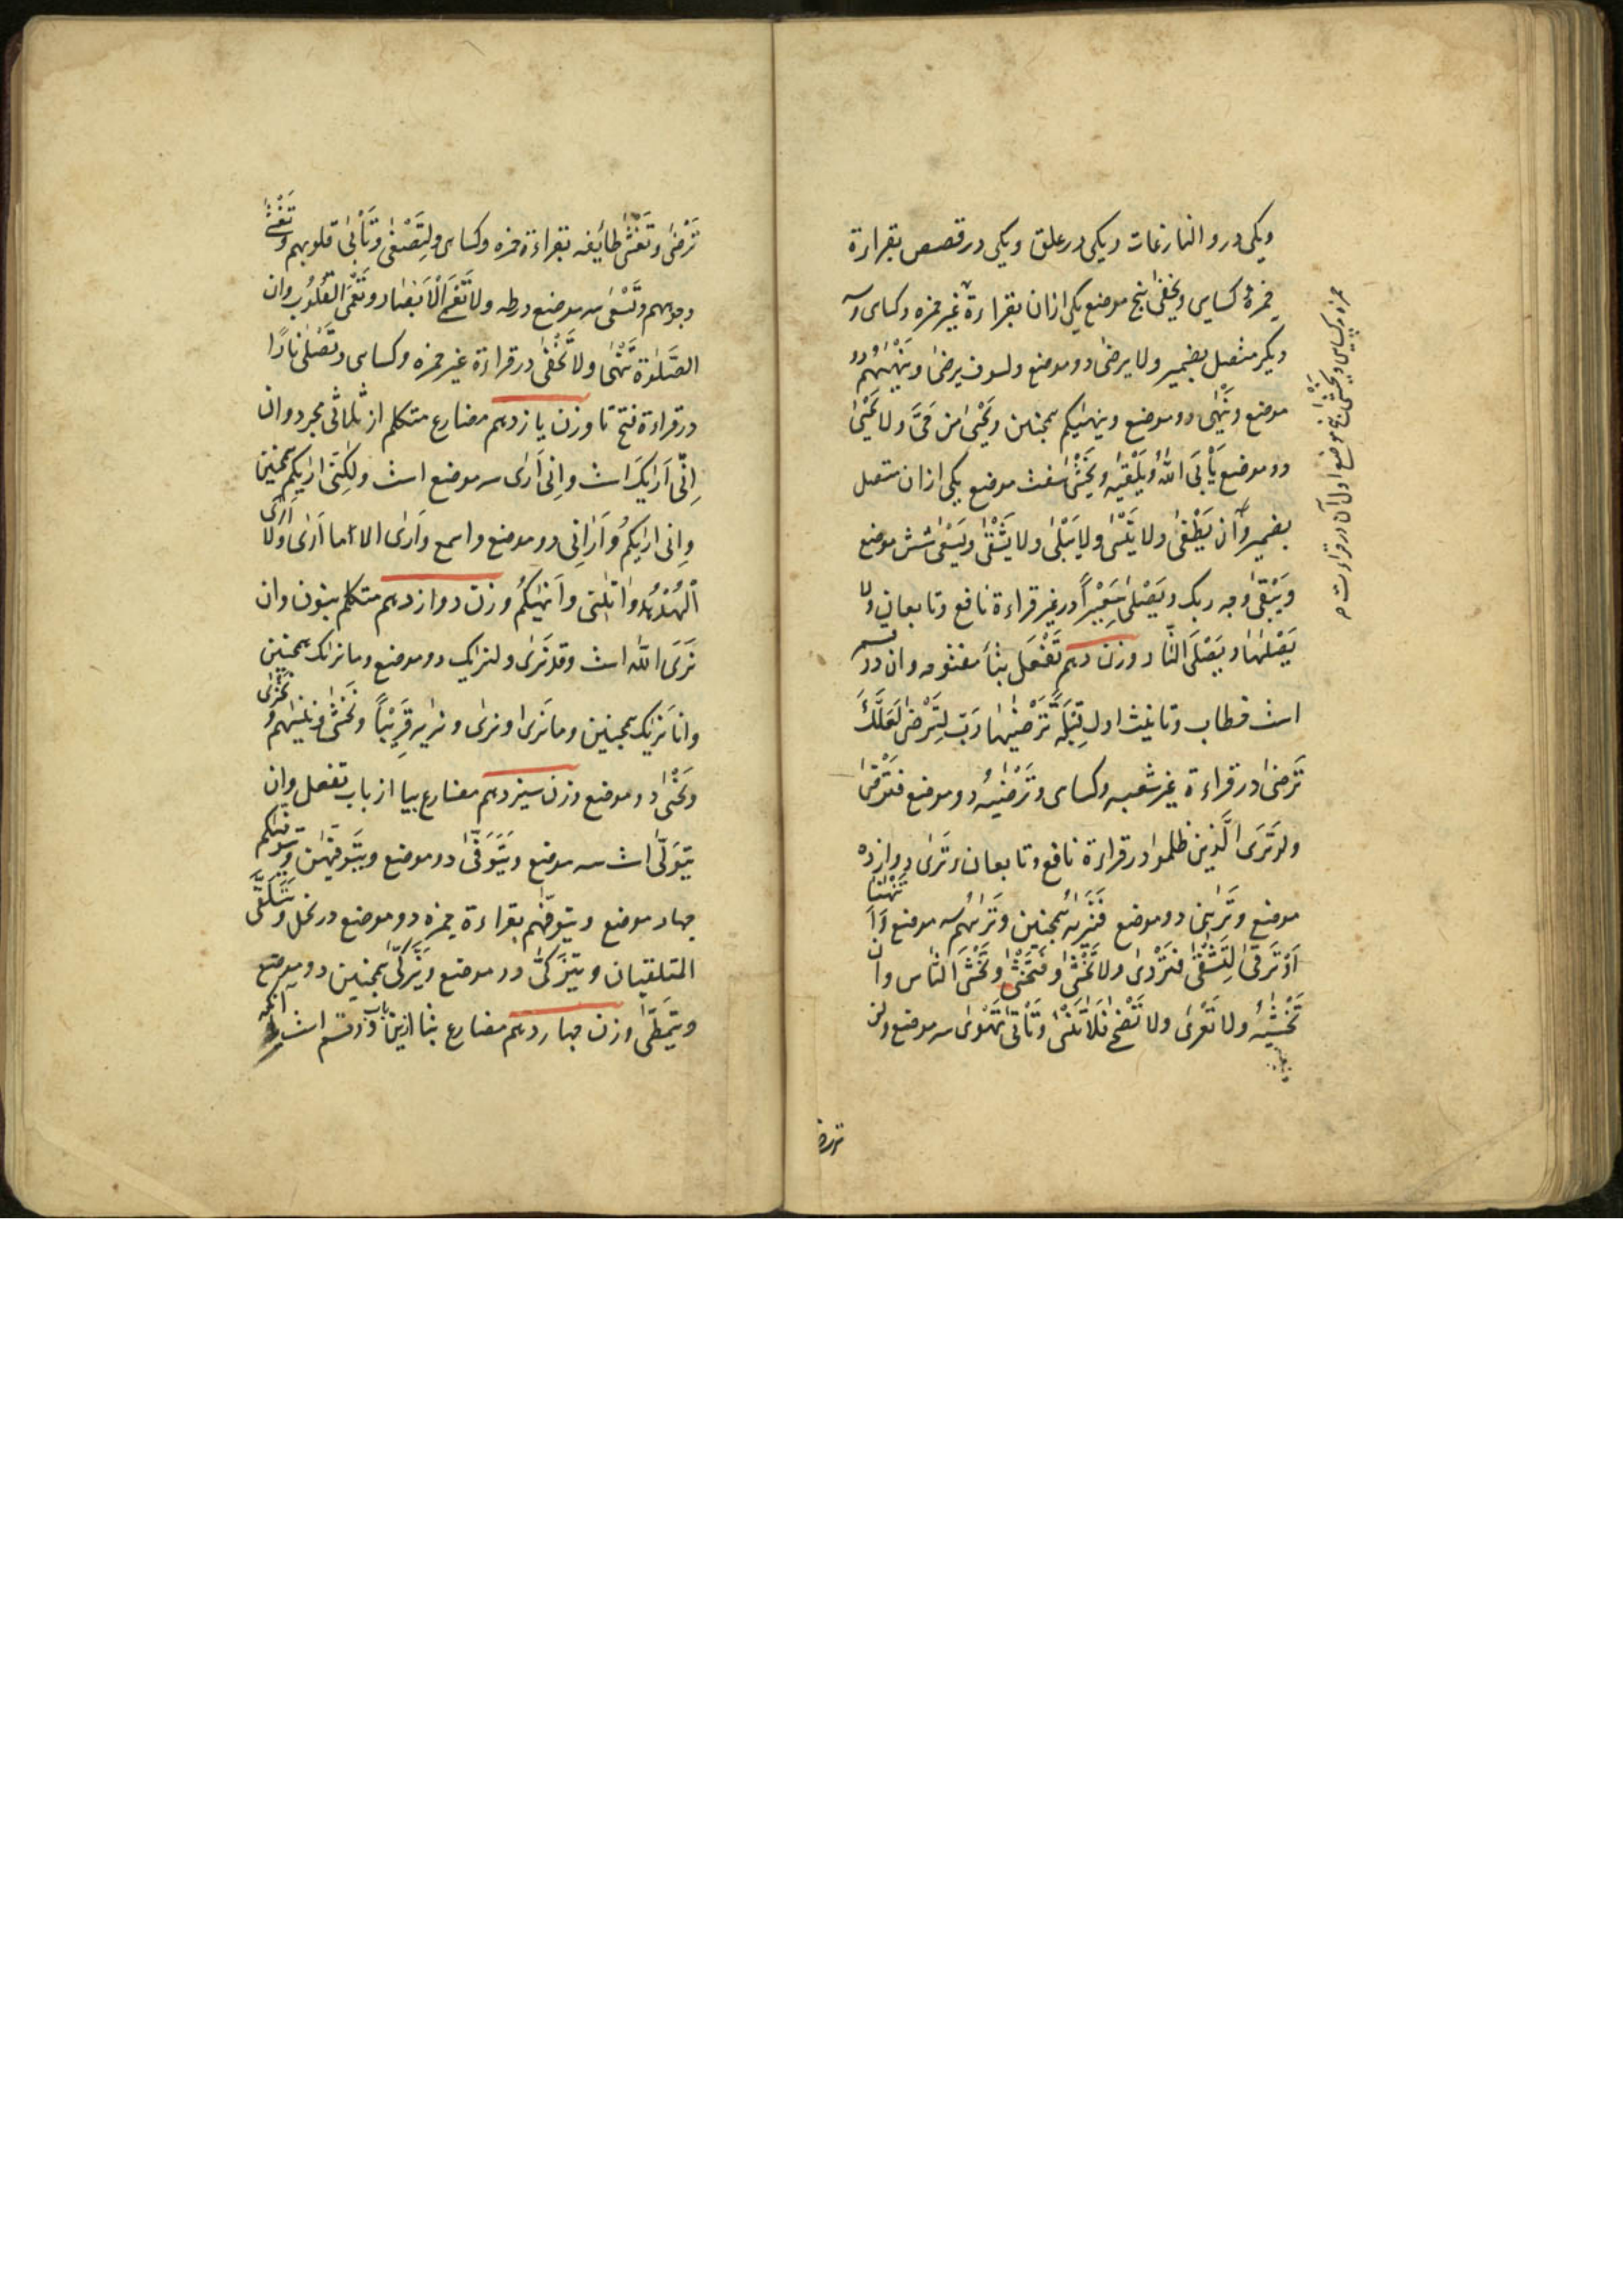 ویکی در و النازعات ویکی در علق ویکی در قصص بقراءة
حمزه و کسایی ویخفی پنج موضع یکی ازان بقراءة غیر حمزه وکسای وسه
دیکر متصل بضمیر ولا یرضی دو موضع ولسوف یرضی وینهیهم دو
موضع وینهی دو موضع وینهیکم همچنین ویحیی من حی ولا یحیی
دو موضع یأبی الله ویلقیه ویخشی هفت موضع یکی ازان متصل
بضمیر وان یطغی ولا ینسی ولا یبلی ولا یشقی ویسعی شش موضع
ویبقی وجه ربک ویصلی سعیرا در غیر قراءة نافع وتابعان ولا
یصلیها ویصلی النار وزن دهم تفعل بتا مفتوحه وان در
است خطاب وتانیث اول قبلة ترضیها رب لترضی لعلک
ترضی در قراءة غیر شعبه وکسای وترضیه دو موضع فترقی
ولو تری الذین ظلموا در قراءة نافع وتابعان وتری دوازده
موضع وترینی دو موضع فتریه همچنین وتریهم سه موضع وا تنهینا
او ترقی لتشقی فتردی ولا تخشی وفتخشی وتخشی الناس وان
تخشیه ولا تعری ولا تضحی فلا تنسی وتأتی تهوی سه موضع ولن
ترض
حمزه وکسایی ویخشی موضع اول آن در قراءت
ترضی وتغشی طایفه بقراءة حمزه وکسای ولتصغی وتأبی قلوبهم وتغشی
وجوههم وتسعی سه موضع در طه ولا تعمی الابصار وتعمی القلوب وان
الصلوة تنهی ولا تخفی در قراءة غیر حمزه وکسای وتصلی نارا
در قراءة فتح تا وزن یازدهم مضارع متکلم از ثلاثی مجرد وان
انی اریک است وانی اری سه موضع است ولکنی اریکم همچنین
وانی اریکم وارانی دو موضع واسمع واری الا ما اری ولا اری
الهدهد وانهیکم وزن دوازدهم متکلم بنون وان
نری الله است وقد نری ولنریک دو موضع وما نریک همچنین
وانا نریک همچنین وما نری او نری ونریه قریبا ونخشی وننسیهم ونخزی
ونحیی دو موضع وزن سیزدهم مضارع بیا از باب تفعل وان
یتولی است سه موضع ویتوفی دو موضع ویتوفیهن ویتوفیکم
چهار موضع ویتوفیهم بقراءة حمزه دو موضع در نحل ویتلقی
المتلقیان ویتزکی دو موضع ویزکی همچنین دو موضع
ویتمطی وزن چهاردهم مضارع بتا ازین باب ودو قسم است آنکه